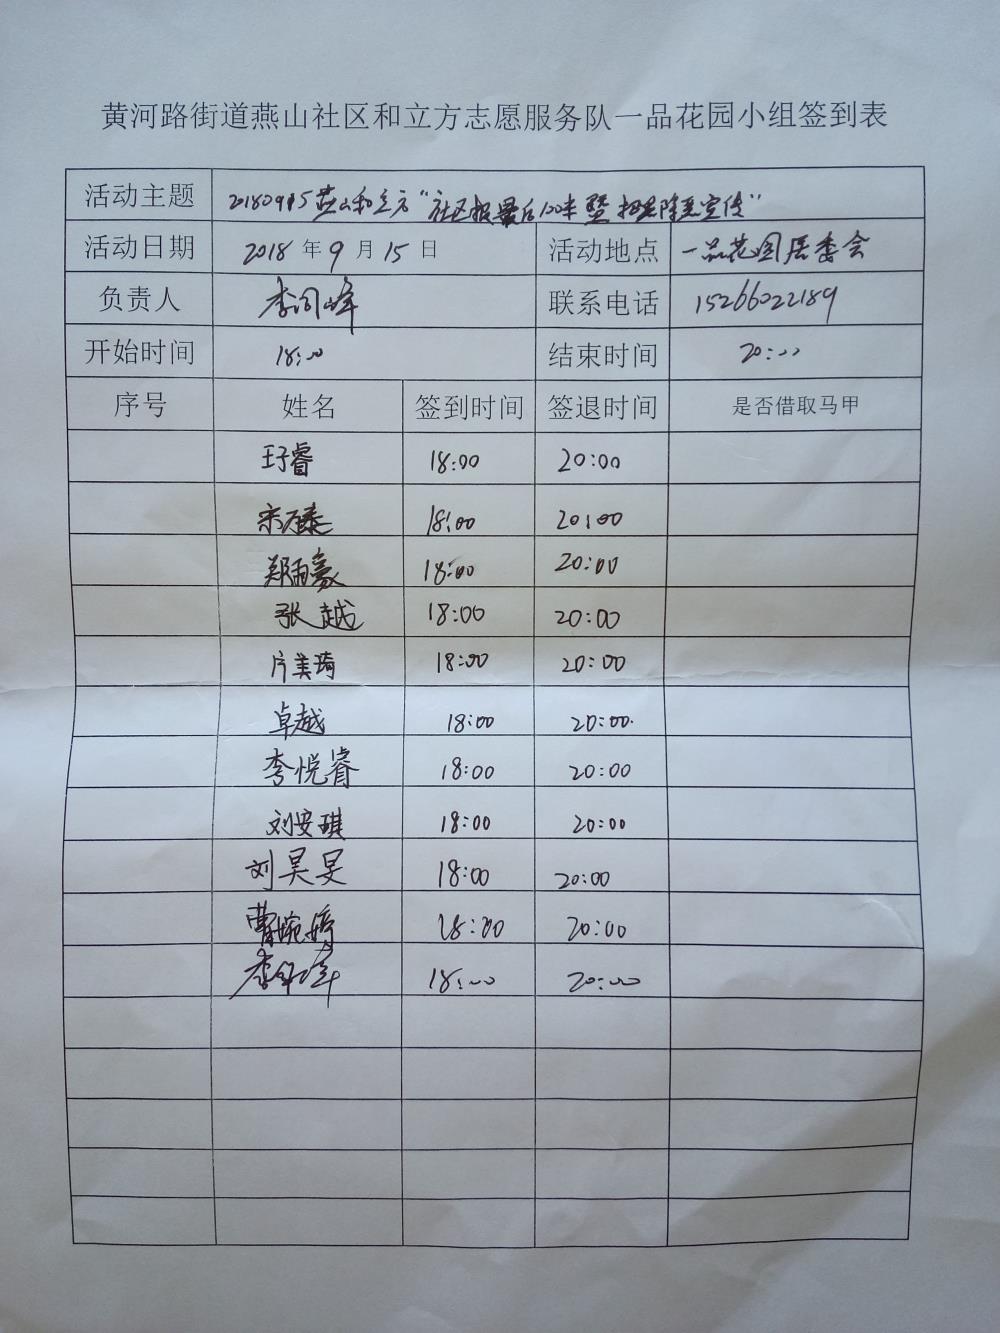 黄河路街道燕山社区和立方志愿服务队一品花园小组签到表
活动主题 20180915燕山和立方“社区报最后100米暨扫黑除恶宣传”
活动日期 2018 年 9 月 15 日 活动地点 一品花园居委会
负责人 李同峰 联系电话 15266022189
开始时间 18:00 结束时间 20:00
序号 姓名 签到时间 签退时间 是否借取马甲
王子睿 18:00 20:00
宋石泰 18:00 20:00
郑雨豪 18:00 20:00
张越 18:00 20:00
美琦 18:00 20:00
卓越 18:00 20:00
李悦睿 18:00 20:00
刘安琪 18:00 20:00
刘昊旻 18:00 20:00
曹婉婷 18:00 20:00
李 18:00 20:00